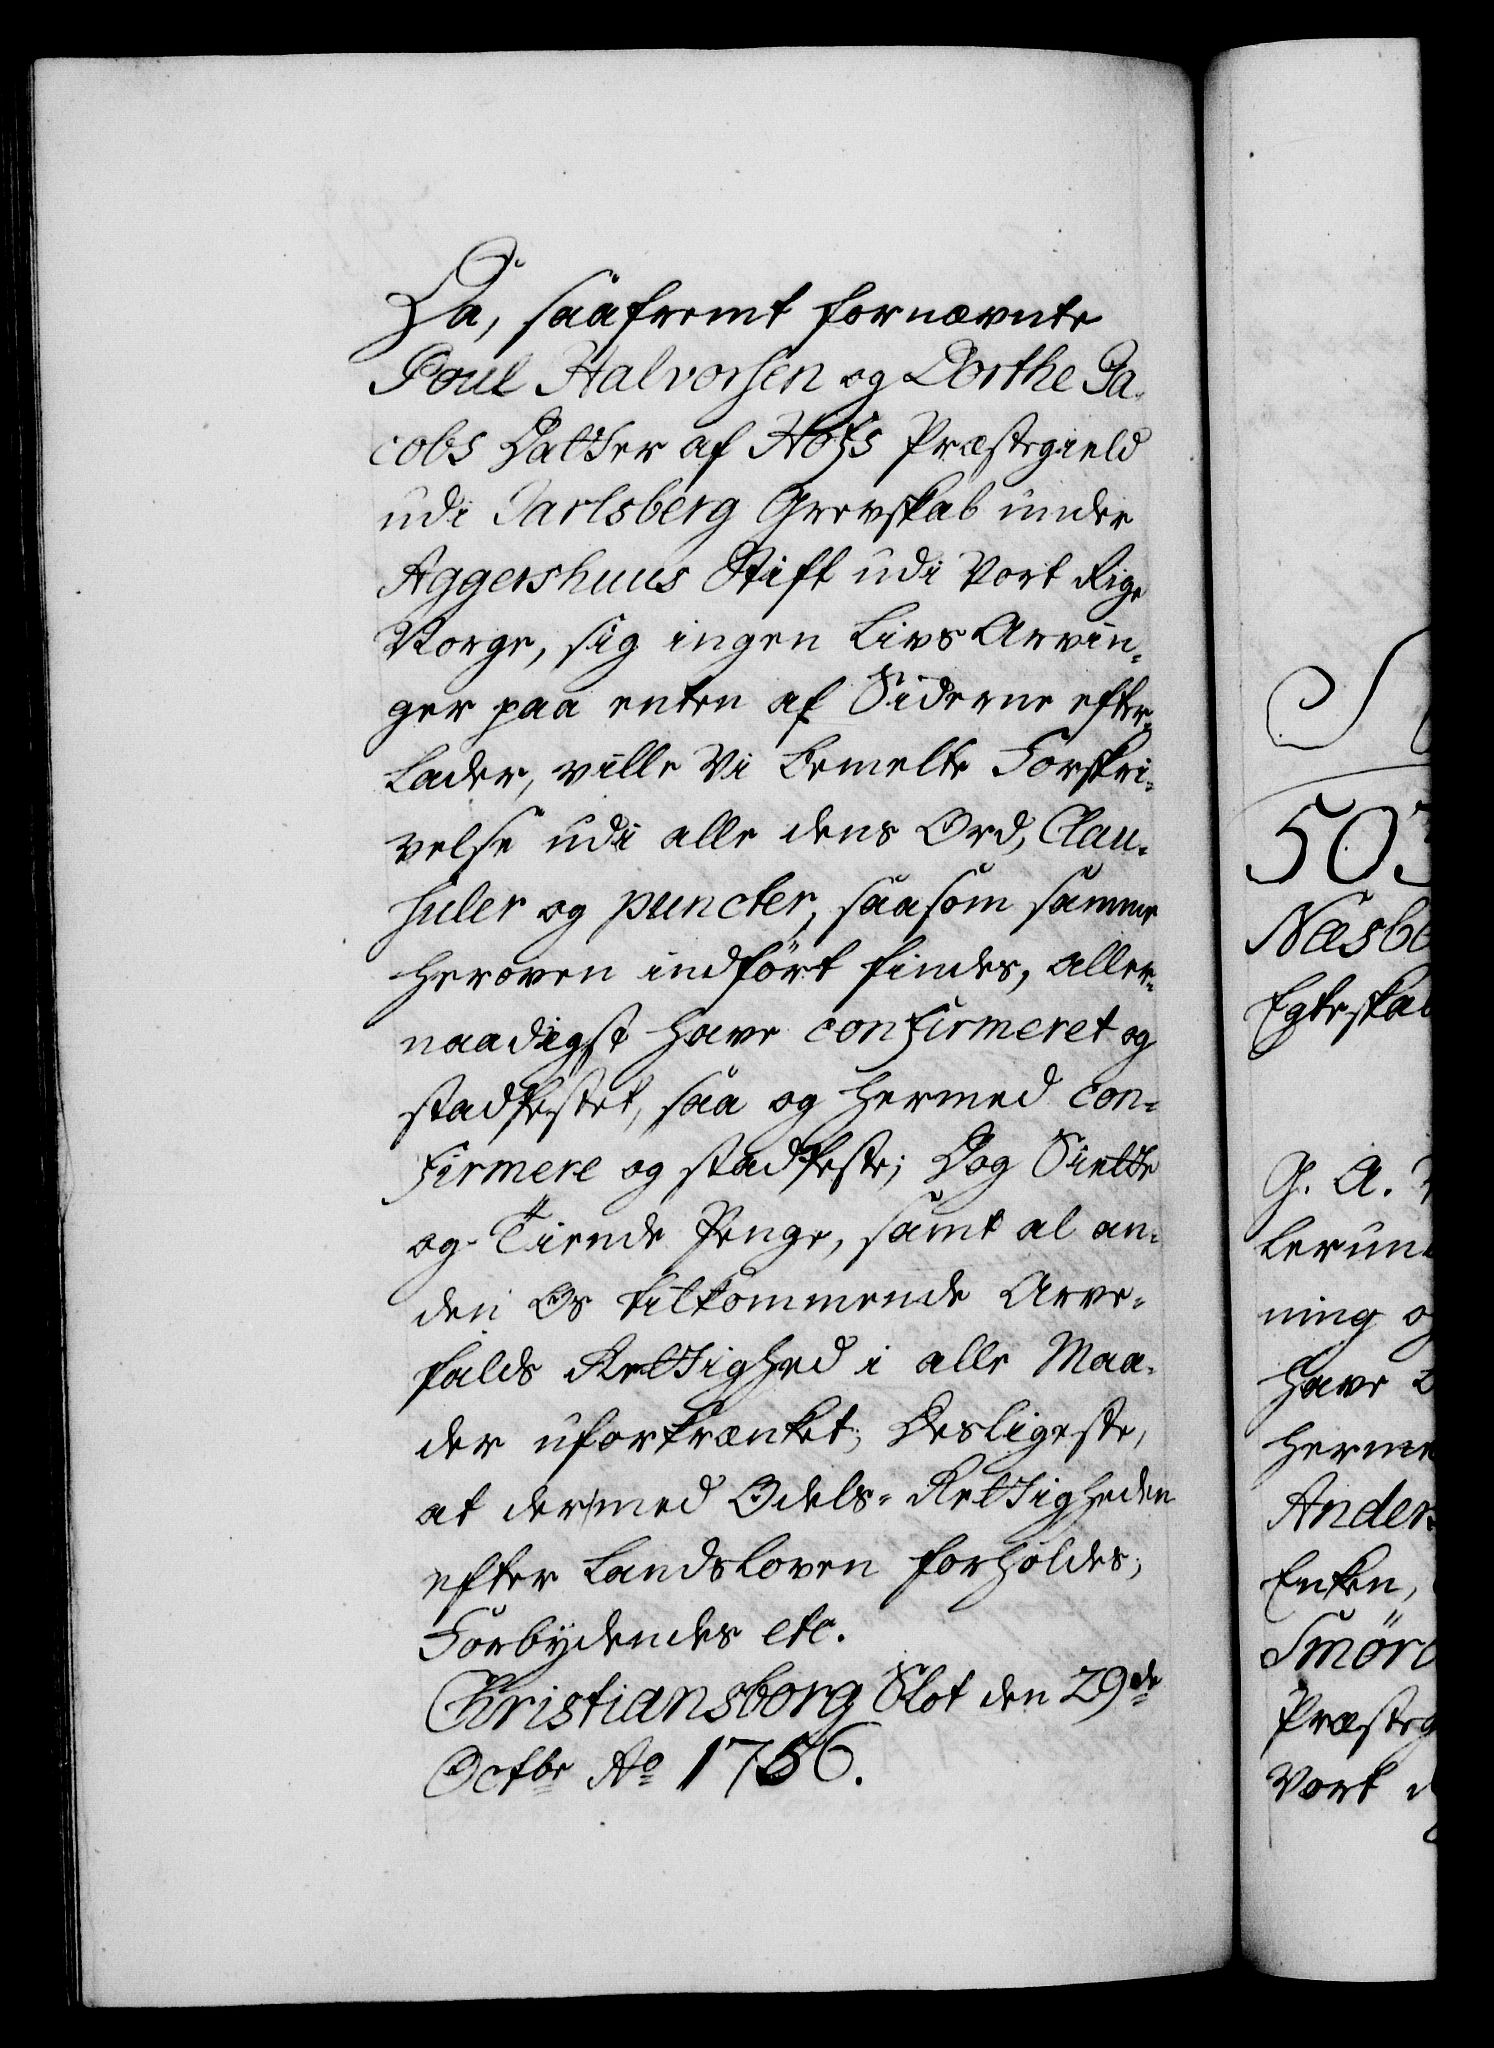 Da, saafremt fornævnte
Poul Halvorsen og Dorthe Ja-
cobs Datter af Hofs Præstegield
udi Jarlsberg Grevskab under
Aggershuus Stift udi Vort Rige
Norge, sig ingen Livs Arvin-
ger paa enten af Siderne efter-
lader, ville Vi bemelte Forskri-
velse udi alle dens Ord, Clau-
suler og puncter, saasom samme
heroven indført findes, aller-
naadigst have confirmeret og
stadfestet, saa og hermed con-
firmere og stadfeste; Dog Siette
og Tiende Penge, samt al an-
den Os tilkommende Arve-
falds Rettighed i alle Maa-
der uforkrænket; Desligeste,
at der med Odels-Rettigheden
efter Landsloven forholdes;
Forbydendes etc.
Christiansborg Slot den 29de
Octbr Ao 1756.
503
Næsb
Egteskab
G. A.
lerun
ning o
have
herme
Anders
Enken,
Smör
Præsteg
Vort